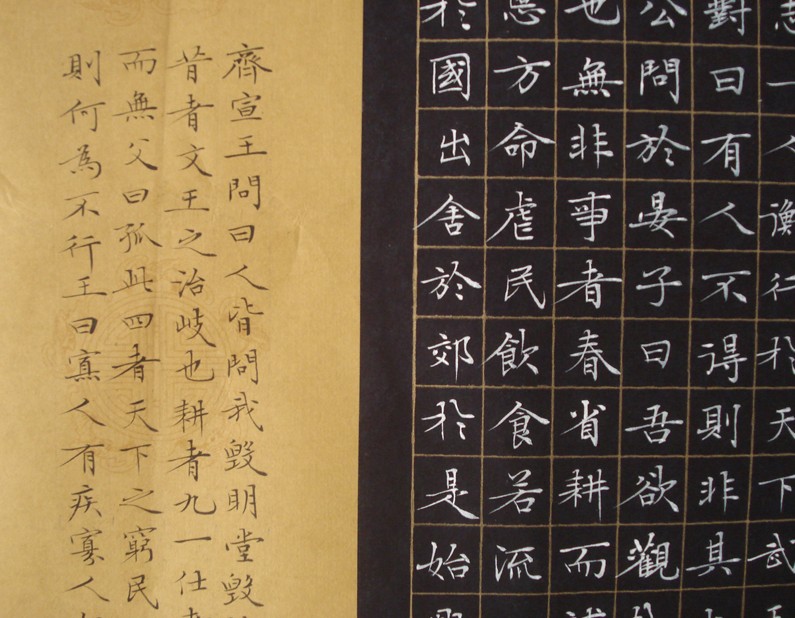 志一人衡行於天下武
對曰有人不得則非其
公問於晏子曰吾欲觀
也無非事者春省耕而補
方命虐民飲食若流
於國出舍於郊於是始興
齊宣王問曰人皆問我毀明堂毀
昔者文王之治岐也耕者九一仕者
而無父曰孤此四者天下之窮民
則何為不行王曰寡人有疾寡人